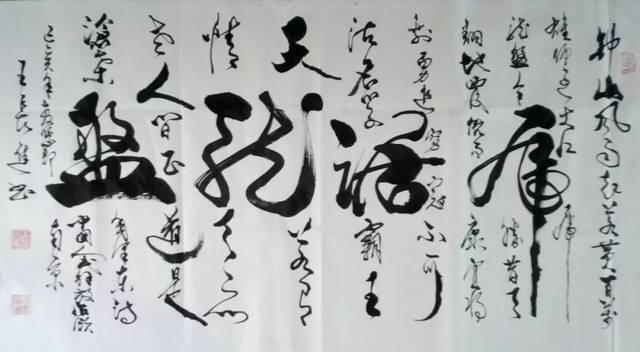 虎踞龙盘
钟山风雨起苍黄百万
雄师过大江虎
龙盘今胜昔天
翻地覆慨而慷宜将
剩勇追穷寇不可
沽名学霸王
天若有
情天亦
老人间正道是
沧桑毛泽东诗
人民解放军占领
己亥年南京
王长進书